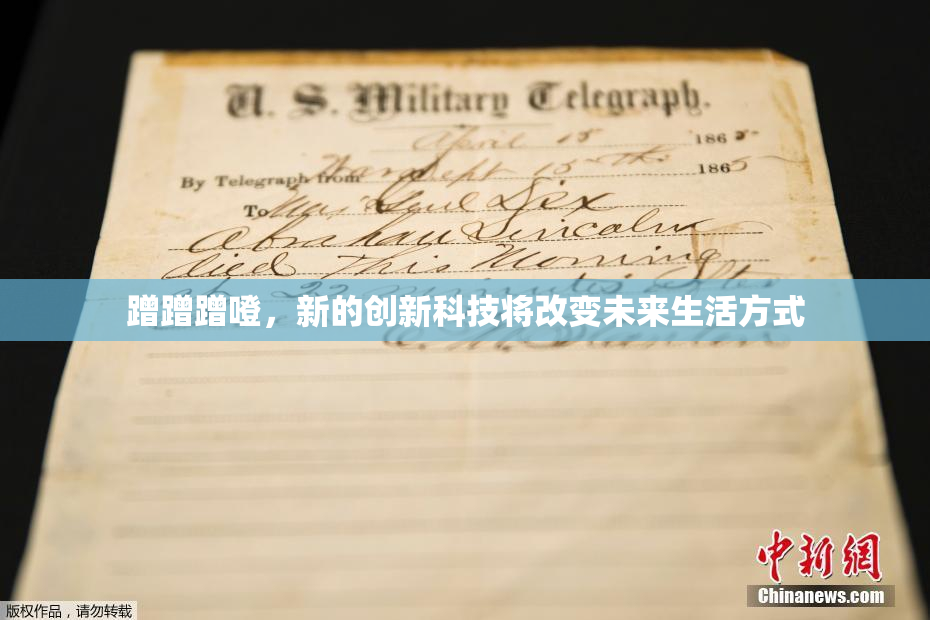 U. S. Military Telegraph.
April 15 1865
By Telegraph from War Dept 15th 1865
To Maj Genl Dix
Abraham Lincoln
died This Morning
at 22 minutes after
蹭蹭蹭噔，新的创新科技将改变未来生活方式
E. M. Stanton
中新网
Chinanews.com
版权作品，请勿转载